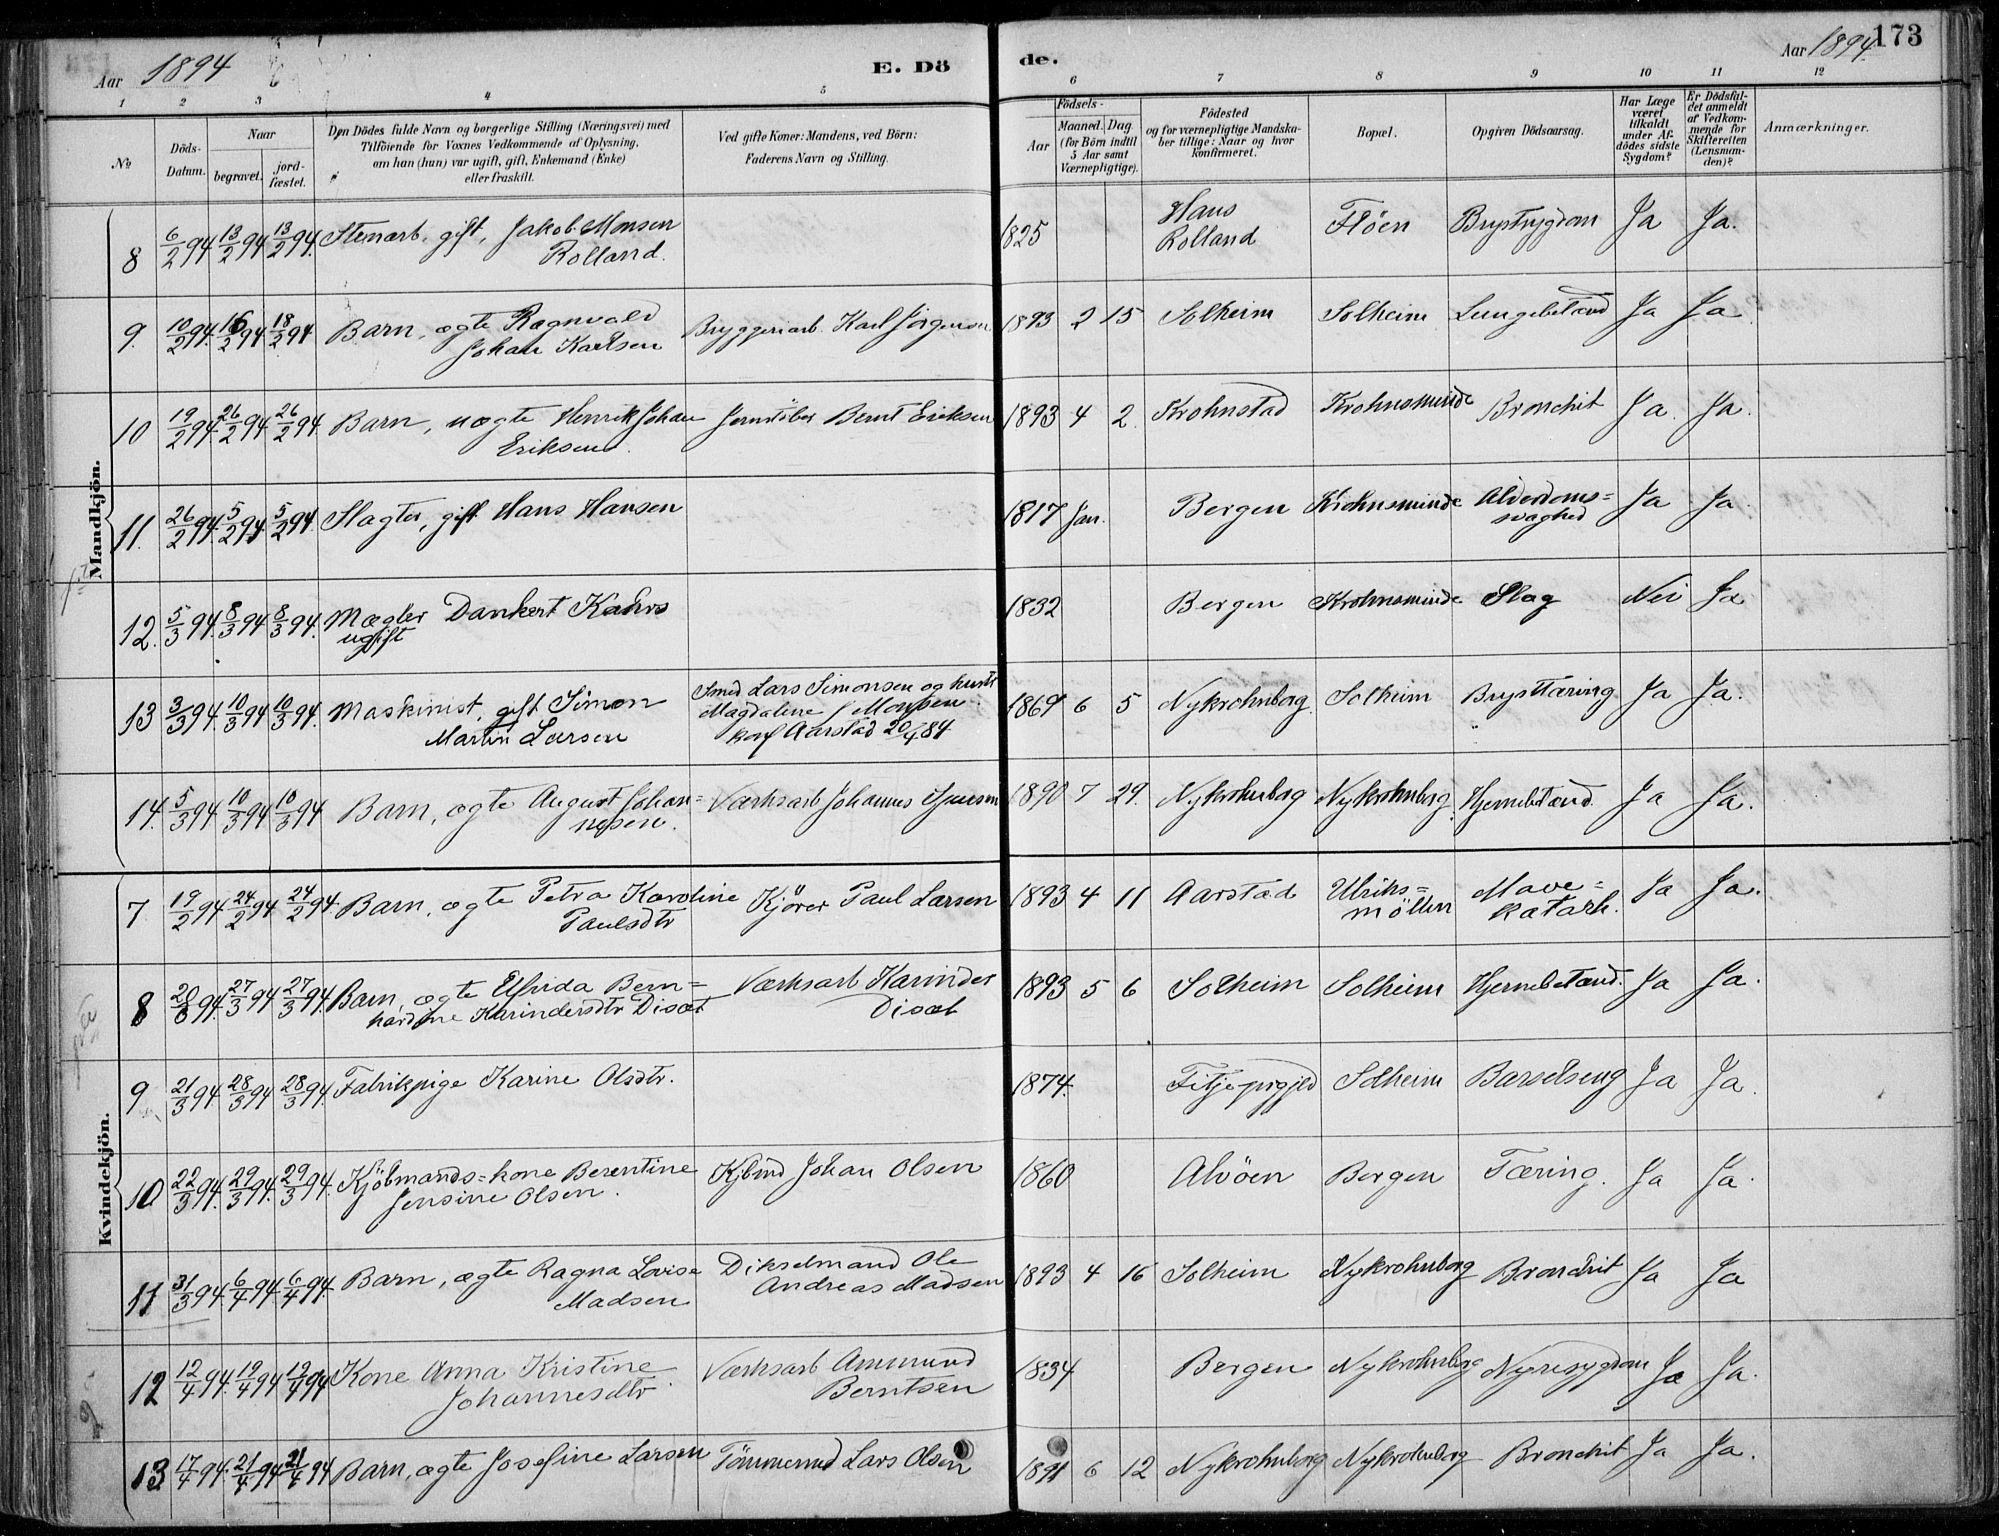 Aar 1894
E. Dö
de.
Aar 1894.
173
1 2 3 4 5 6 7 8 9 10 11 12
No
Döds-Datum.
Naar
begravet.
jordfæstet.
Den Dödes fulde Navn og borgerlige Stilling (Næringsvei) med
Tilföiende for Voxnes Vedkommende af Oplysning,
om han (hun) var ugift, gift, Enkemand (Enke)
eller fraskilt.
Ved gifte Koner: Mandens, ved Börn:
Faderens Navn og Stilling.
Födsels-
Aar
Maaned. Dag
(for Börn indtil
5 Aar samt
Værnepligtige).
Födested
og for værnepligtige Mandska-
ber tillige: Naar og hvor
konfirmeret.
Bopæl.
Opgiven Dödsaarsag.
Har Læge
været
tilkaldt
under Af-
dödes sidste
Sygdom?
Er Dödsfal-
det anmeldt
af Vedkom-
mende for
Skifteretten
(Lensman-
den)?
Anmærkninger.
Mandkjön.
8 6/2 94 13/2 94 13/2 94. Stenarb. gift, Jakob Monsen 1825 Haus Flöen Brystsygdom Ja Ja.
Rolland. Rolland
9. 10/2 94. 16/2 94 18/2 94 Barn, ægte Ragnvald Bryggeriarb. Karl Jörgensen 1893 2 15 Solheim Solheim Lungebetænd Ja Ja
Johan Karlsen
10 19/2 94. 26/2 94 26/2 94 Barn, uægte Henrik Johan Jernstöber Bernt Eriksen 1893 4 2. Krohnstad Krohnsminde Bronchit Ja. Ja.
Eriksen.
11. 26/2 94. 5/2 94 5/2 94. Slagter, gift Hans Hansen 1817 Jan. Bergen Krohnsminde Alderdoms= Ja Ja.
svaghed
12. 5/3 94. 8/3 94 8/3 94. Mægler Dankert Kahrs 1832 Bergen Krohnsminde Slag Nei Ja
ugift
13 3/3 94. 10/3 94 10/3 94. Maskinist, gift Simon Smed Lars Simonsen og hustr 1869 6 5 Nykrohnborg. Solheim Brysttæring Ja Ja.
Martin Larsen Magdalene f Monsen
konf Aarstad 20/4 84
14. 5/3 94 10/3 94 10/3 94 Barn, ægte August Johan= Værksarb Johannes 1890 7 29. Nykrohnborg Nykrohnborg. Hjernebetænd. Ja Ja.
nesen.
Kvindekjön.
7 19/2 94 24/2 94 24/2 94 Barn, ægte Petra Karoline Kjörer Paul Larsen 1893 4 11 Aarstad Ulriks= Mave= Ja Ja.
Paulsdtr möllen katarh.
8 20/3 94. 27/3 94 27/3 94. Barn, ægte Elfrida Bern= Værksarb Karinder 1893 5 6 Solheim Solheim Hjernebetænd. Ja Ja.
hardine Karindersdtr Disæt Disæt
9 21/3 94 28/3 94 28/3 94. Fabrikpige Karine Olsdtr. 1874. Fitje prgjld Solheim Barselseng Ja Ja.
10 22/3 94. 29/3 94. 29/3 94. Kjöbmands=kone Berentine Kjbmd Johan Olsen 1860 Alvöen Bergen Tæring. Ja Ja.
Jensine Olsen.
11 31/3 94 6/4 94 6/4 94. Barn, ægte Ragna Lovise Dikselmand Ole 1893 4 16 Solheim Nykrohnborg Bronchit Ja Ja
Madsen Andreas Madsen
12 12/4 94. 19/4 94 19/4 94 Kone Anna Kristine Værksarb Ammund 1834 Bergen Nykrohnborg Nyresygdom Ja Ja.
Johannesdtr. Berntsen
13 17/4 94. 21/4 94 21/4 94 Barn, ægte Josefine Larsen Tömmermd Lars Olsen 1891 6 12 Nykrohnborg Nykrohnborg Bronchit Ja Ja.